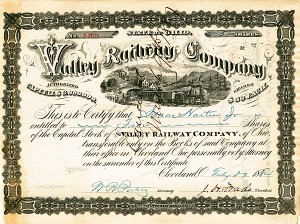 STATE OF OHIO.
No. SHARES
Valley Railway Company
AUTHORIZED CAPITAL $3,000,000. SHARES $50 EACH.
This is to Certify that Isaac Harter Jr
entitled to Shares
of the Capital Stock of the VALLEY RAILWAY COMPANY, of Ohio,
transferable only on the Books of said Company at
their office in Cleveland Ohio, personally or by Attorney
on the surrender of this Certificate.
Cleveland Feby 188
Secretary President